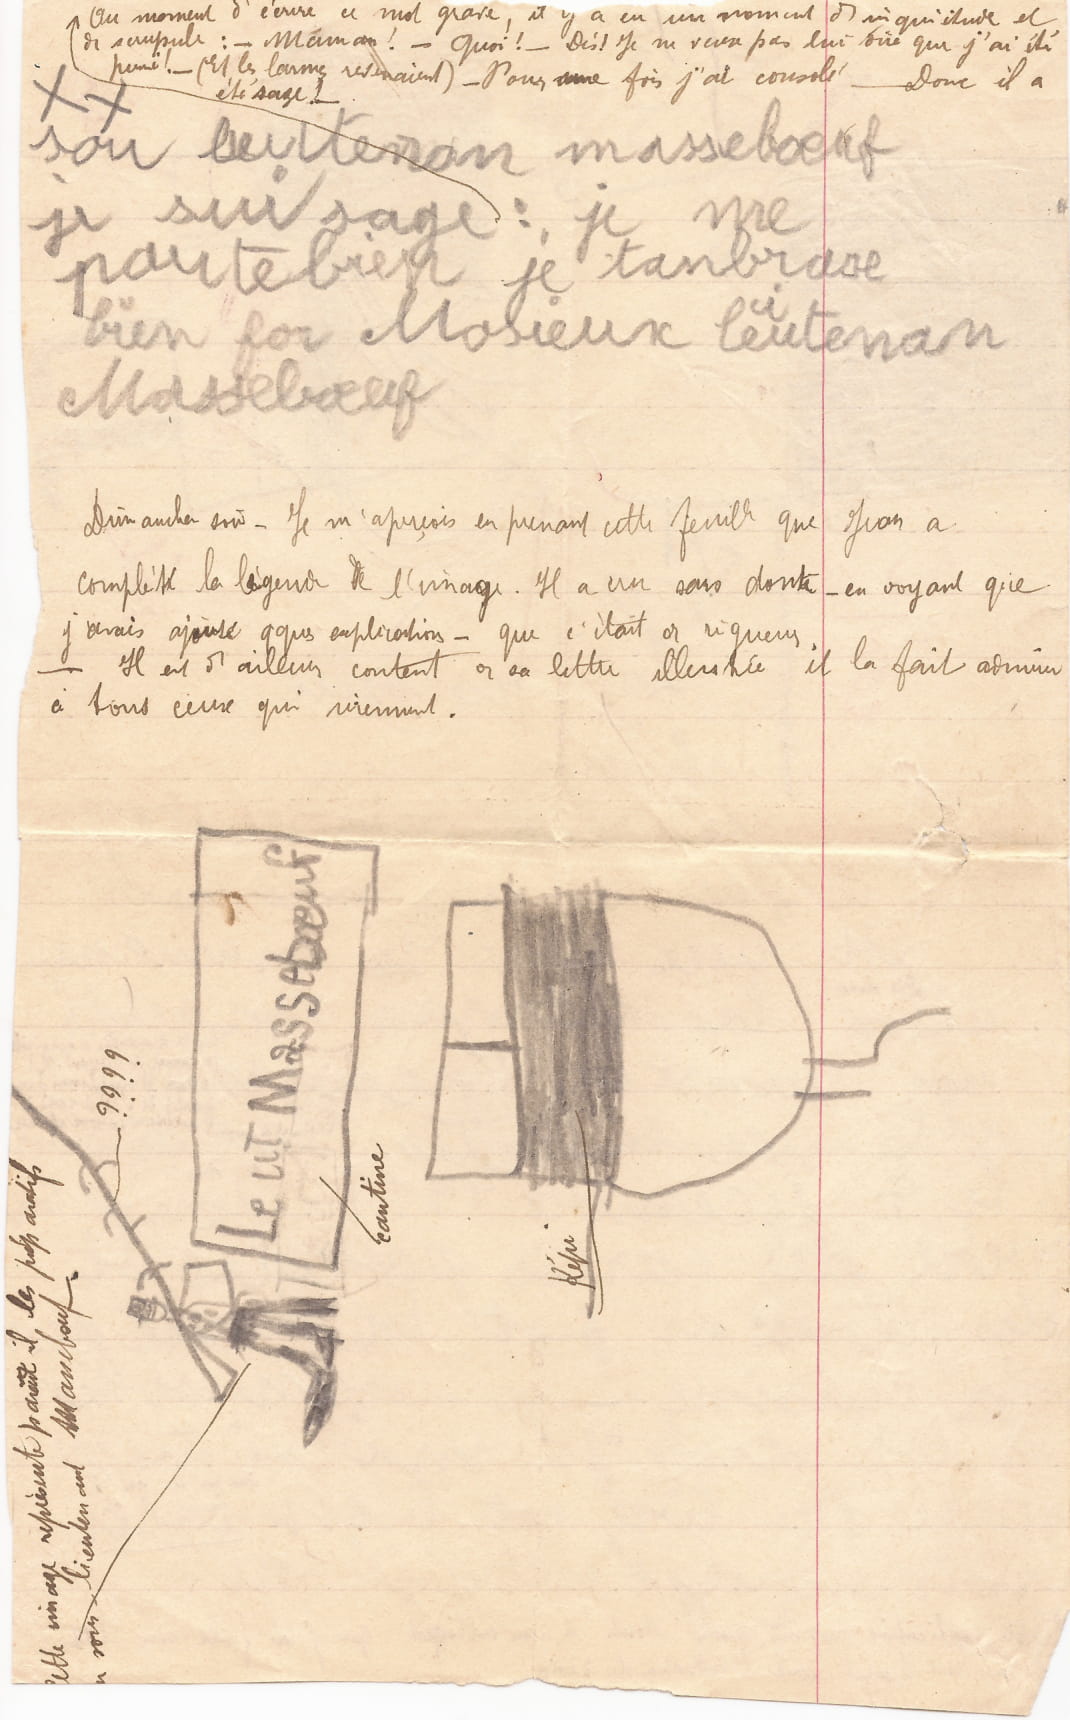 Au moment d'écrire ce mot grave, il y a eu un moment d'inquiétude et
de scrupule : — Maman ! — Quoi ! — Dis ! Je ne veux pas lui dire que j'ai été
puni ! — (Et les larmes revenaient) — Pour une fois j'ai consolé — Donc il a
été sage !
XX
sou leuttenan massebœuf
je sui sage : je me
porte bien je tanbrase
bien for Mosieux leiutenan
Massebœuf
Dimanche soir — Je m'aperçois en prenant cette feuille que Jean a
complété la légende de l'image. Il a cru sans doute — en voyant que
j'avais ajouté qques explications — que c'était de rigueur.
— Il est d'ailleurs content de sa lettre illustrée il la fait admirer
à tous ceux qui viennent.
Le ut Massebœuf
cantine
Képi
????
Cette image représente paraît il les préparatifs
lieutenant Massebœuf.